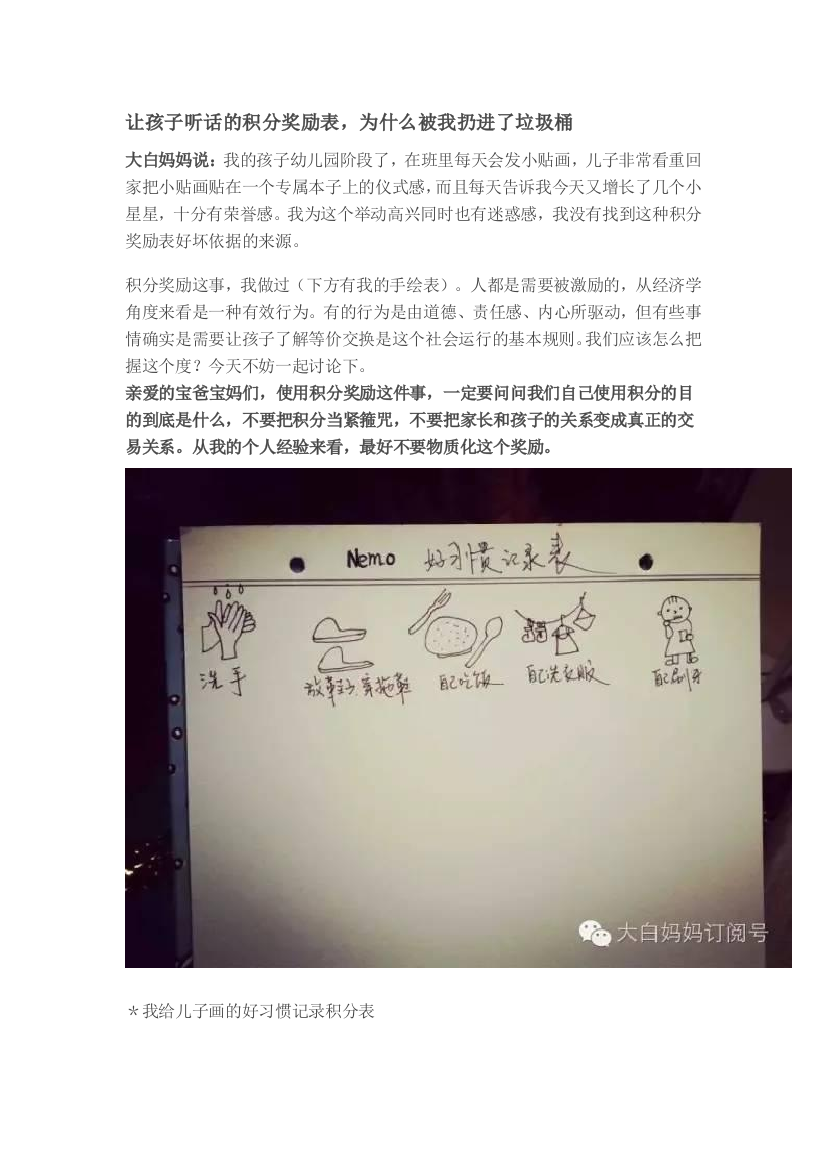 让孩子听话的积分奖励表，为什么被我扔进了垃圾桶
大白妈妈说：我的孩子幼儿园阶段了，在班里每天会发小贴画，儿子非常看重回
家把小贴画贴在一个专属本子上的仪式感，而且每天告诉我今天又增长了几个小
星星，十分有荣誉感。我为这个举动高兴同时也有迷惑感，我没有找到这种积分
奖励表好坏依据的来源。
积分奖励这事，我做过（下方有我的手绘表）。人都是需要被激励的，从经济学
角度来看是一种有效行为。有的行为是由道德、责任感、内心所驱动，但有些事
情确实是需要让孩子了解等价交换是这个社会运行的基本规则。我们应该怎么把
握这个度？今天不妨一起讨论下。
亲爱的宝爸宝妈们，使用积分奖励这件事，一定要问问我们自己使用积分的目
的到底是什么，不要把积分当紧箍咒，不要把家长和孩子的关系变成真正的交
易关系。从我的个人经验来看，最好不要物质化这个奖励。
Nemo 好习惯记录表
洗手 放鞋子.穿拖鞋 自己吃饭 自己洗衣服 自己刷牙
大白妈妈订阅号
＊我给儿子画的好习惯记录积分表